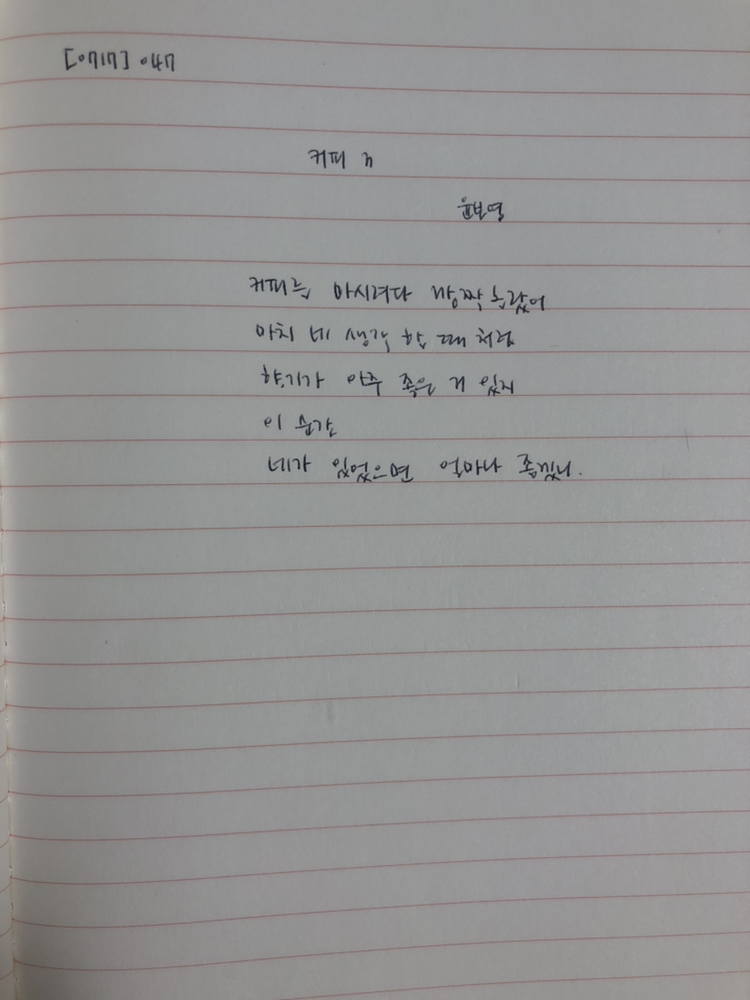 [0717] 047
커피
윤보영
커피를 마시려다 깜짝 놀랐어
마치 네 생각 할 때 처럼
향기가 아주 좋은 거 있지
이 순간
네가 있었으면 얼마나 좋겠니.